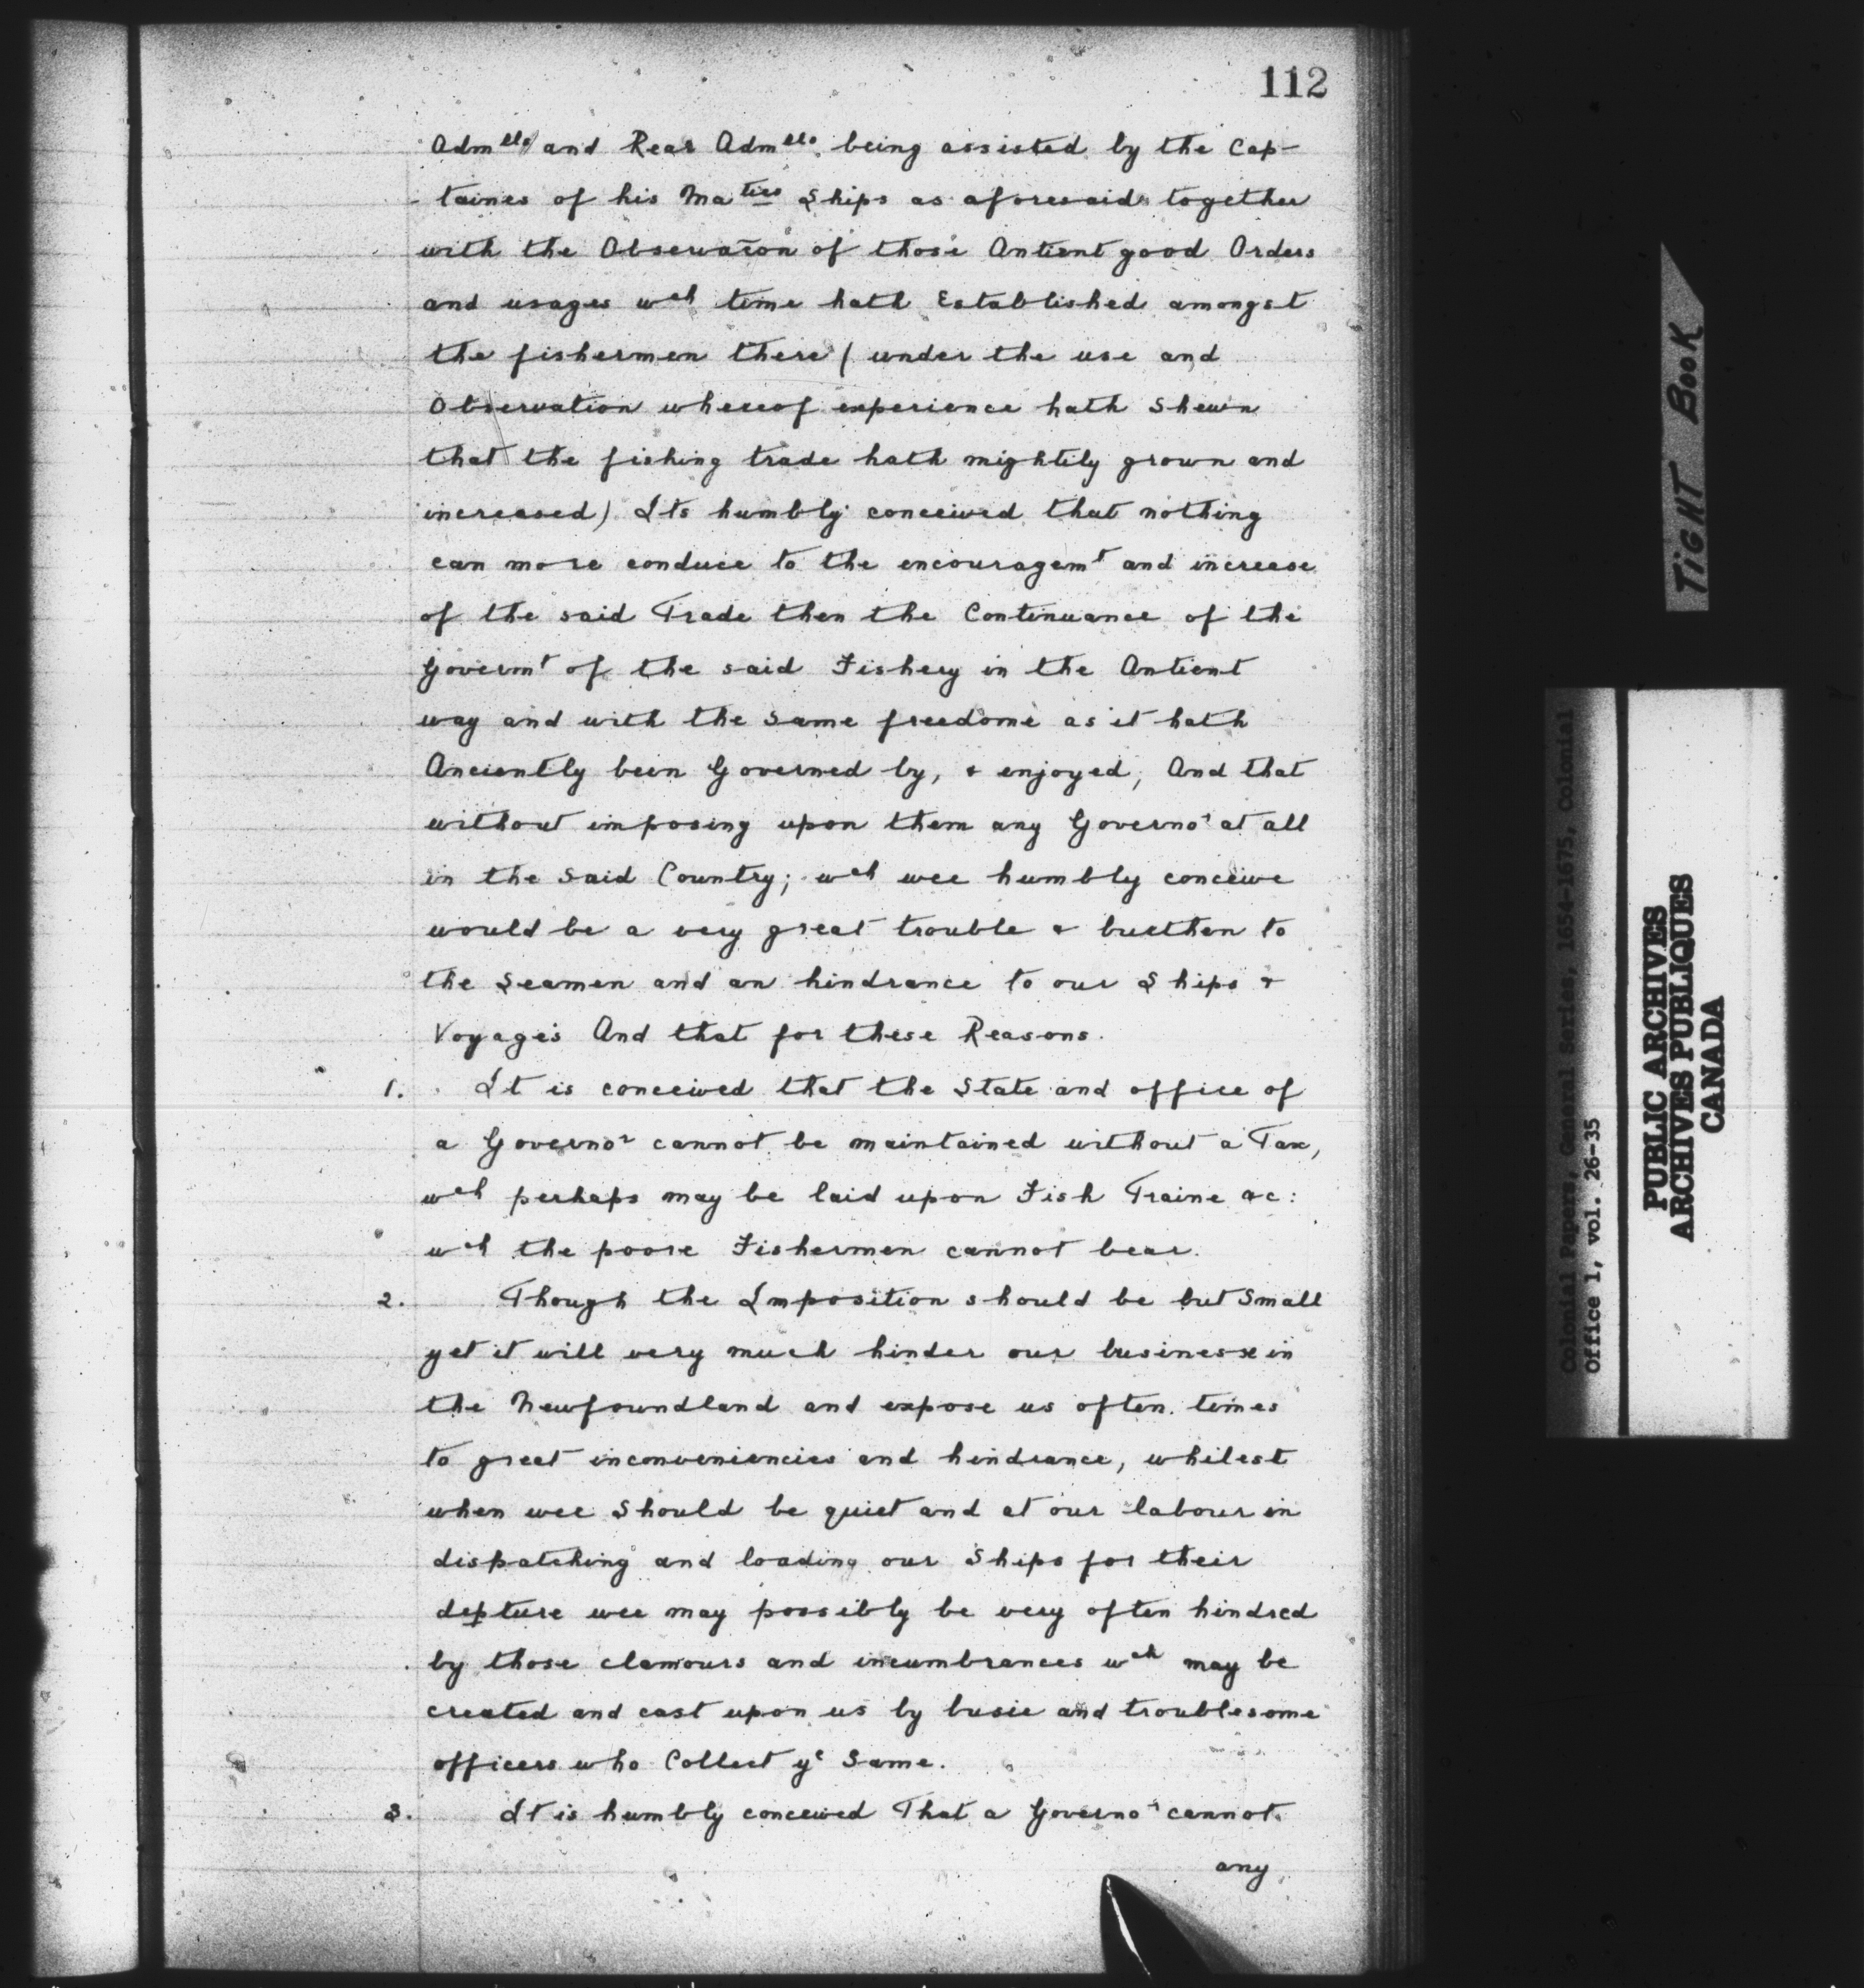 112
Adm^lls) and Rear Adm^lls. being assisted by the Cap-
taines of his Ma^ties Ships as aforesaid together
with the Observac̄on of those Antient good Orders
and usages w^ch time hath Established amongst
the fishermen there (under the use and
Observation whereof experience hath shewn
that the fishing trade hath mightily grown and
increased) Its humbly conceived that nothing
can more conduce to the encouragem^t and increase
of the said Trade then the Continuance of the
Governm^t of the said Fishery in the Antient
way and with the same freedome as it hath
Anciently been Governed by, & enjoyed, And that
without imposing upon them any Governo^r at all
in the said Country; w^ch wee humbly conceive
would be a very great trouble & burthen to
the Seamen and an hindrance to our Ships &
Voyages And that for these Reasons.
1. It is conceived that the State and office of
a Governo^r cannot be maintained without a Tax,
w^ch perhaps may be laid upon Fish Traine &c:
w^ch the poore Fishermen cannot bear.
2. Though the Imposition should be but Small
yet it will very much hinder our businesse in
the Newfoundland and expose us often times
to great inconveniencies and hindrance, whilest
when wee should be quiet and at our labour in
dispatching and loading our Ships for their
depture wee may possibly be very often hindred
by those clamours and incumbrances w^ch may be
created and cast upon us by busie and troublesome
officers who Collect y^e Same.
3. It is humbly conceived That a Governo^r cannot
any
TIGHT BOOK
Colonial Papers, General Series, 1654-1675, Colonial
Office 1, vol. 26-35
PUBLIC ARCHIVES
ARCHIVES PUBLIQUES
CANADA